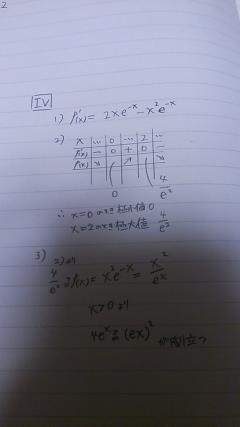 2
IV
1) f'(x) = 2xe^{-x} - x^2 e^{-x}
2)
x | … | 0 | … | 2 | …
f'(x) | - | 0 | + | 0 | -
f(x) | ↘ | | ↗ | | ↘
0 4/e^2
∴ x=0のとき極小値 0
x=2のとき極大値 4/e^2
3) 2)より
4/e^2 ≧ f(x) = x^2 e^{-x} = x^2/e^x
x>0より
4e^x ≧ (ex)^2 が成り立つ